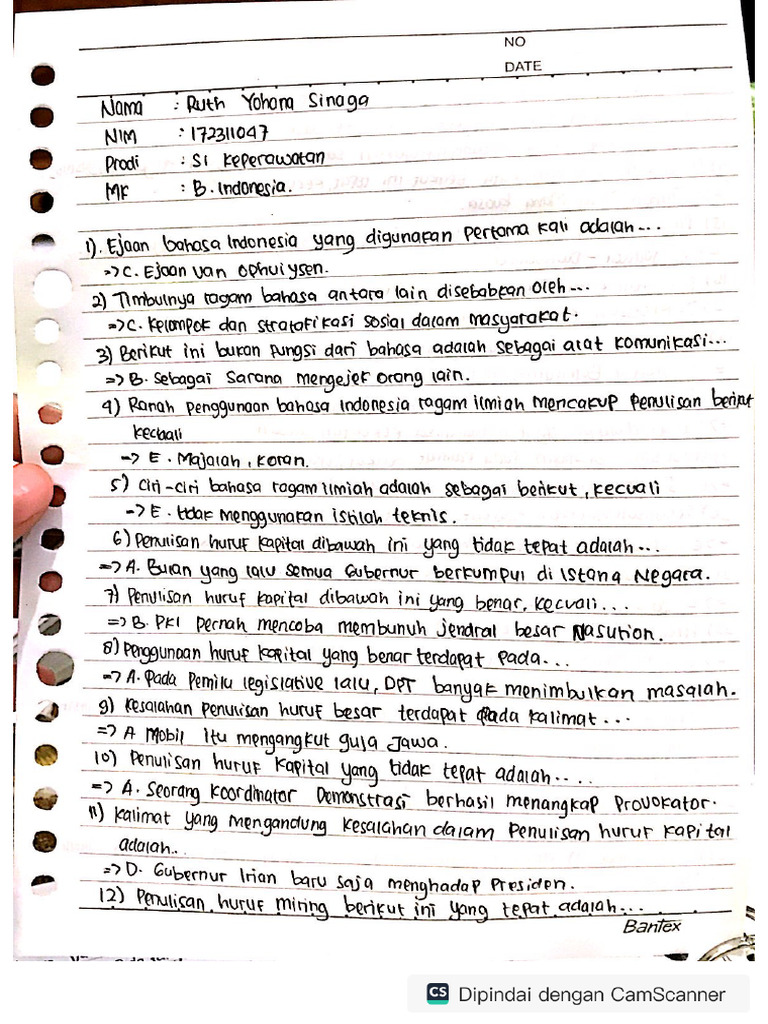 NO
DATE
Nama : Ruth Yohana Sinaga
NIM : 172311047
Prodi : S1 Keperawatan
MK : B. Indonesia.
1). Ejaan bahasa Indonesia yang digunakan pertama kali adalah...
=> C. Ejaan Van Ophuiysen.
2) Timbulnya ragam bahasa antara lain disebabkan oleh...
=> C. Kelompok dan stratafikasi sosial dalam masyarakat.
3) Berikut ini bukan fungsi dari bahasa adalah sebagai alat komunikasi...
=> B. Sebagai Sarana mengejek orang lain.
4) Ranah penggunaan bahasa Indonesia ragam ilmiah mencakup penulisan berikut
kecuali
-> E. Majalah, koran.
5) Ciri-ciri bahasa ragam ilmiah adalah sebagai berikut, kecuali
-> E. tidak menggunakan istilah teknis.
6) Penulisan huruf kapital dibawah ini yang tidak tepat adalah...
=> A. Bulan yang lalu semua Gubernur berkumpul di Istana Negara.
7) Penulisan huruf kapital dibawah ini yang benar, kecuali...
=> B. PKI pernah mencoba membunuh jendral besar Nasution.
8) Penggunaan huruf kapital yang benar terdapat pada...
-> A. Pada Pemilu legislative lalu, DPT banyak menimbulkan masalah.
9) Kesalahan penulisan huruf besar terdapat pada kalimat...
=> A Mobil itu mengangkut gula Jawa.
10) Penulisan huruf kapital yang tidak tepat adalah....
=> A. Seorang Koordinator Demonstrasi berhasil menangkap Provokator.
11) Kalimat yang mengandung kesalahan dalam penulisan huruf kapital
adalah..
=> D. Gubernur Irian baru saja menghadap Presiden.
12) Penulisan huruf miring berikut ini yang tepat adalah...
Bantex
CS Dipindai dengan CamScanner